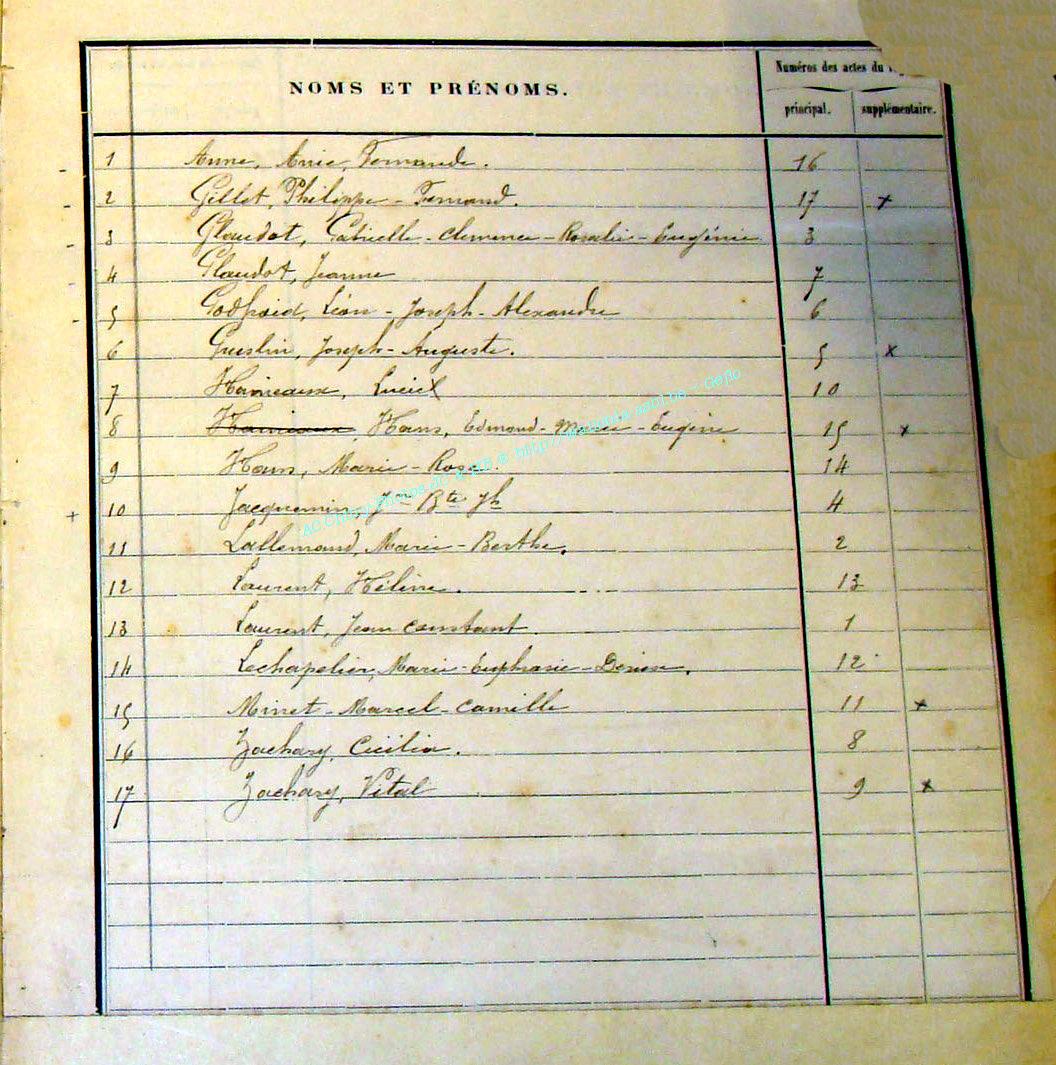 Numéros des actes du
NOMS ET PRÉNOMS.
principal. supplémentaire.
1 Anne, Fernande. 16
2 Gillet, Philippe - Fernand. 17 x
3 Glaudot, Gabrielle - Clemence - Rosalie - Eugénie. 3
4 Glaudot, Jeanne 7
5 Godfroid, Léon - Joseph - Alexandre 6
6 Guslin, Joseph - Auguste. 5 x
7 Hainiaux, Lucie 10
8 Hainiaux, Hans, Edmond - Marie - Eugénie 15 x
9 Hans, Marie - Rosa. 14
+ 10 Jacquemin, Jn Bte Jh 4
11 Lallemand, Marie - Berthe. 2
12 Laurent, Hélène. 13
13 Laurent, Jean Constant. 1
14 Lechapelier, Marie - Euphrasie - Denise. 12
15 Minet - Marcel - Camille 11 x
16 Zachary, Cécilia. 8
17 Zachary, Vital 9 x